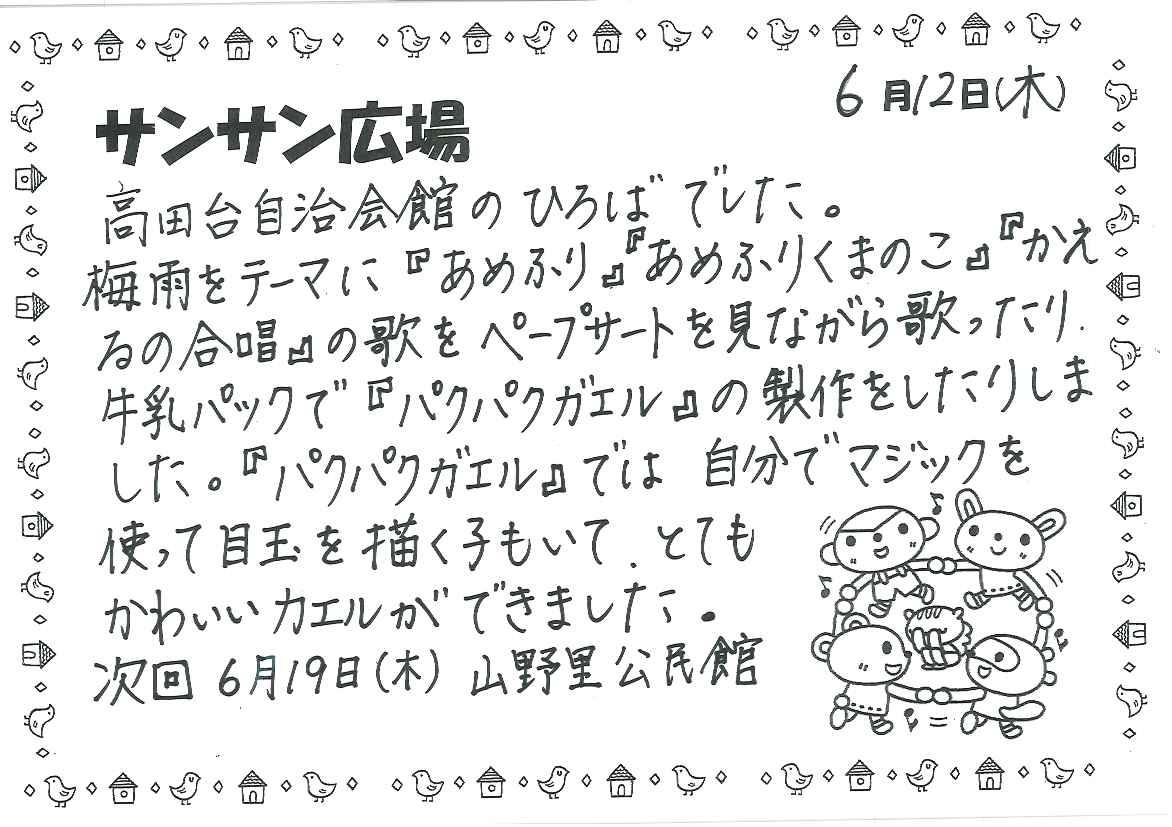 6月12日(木)
サンサン広場
高田台自治会館のひろばでした。
梅雨をテーマに『あめふり』『あめふりくまのこ』『かえ
るの合唱』の歌をペープサートを見ながら歌ったり、
牛乳パックで『パクパクガエル』の製作をしたりしま
した。『パクパクガエル』では 自分でマジックを
使って目玉を描く子もいて、とても
かわいいカエルができました。
次回 6月19日(木) 山野里公民館